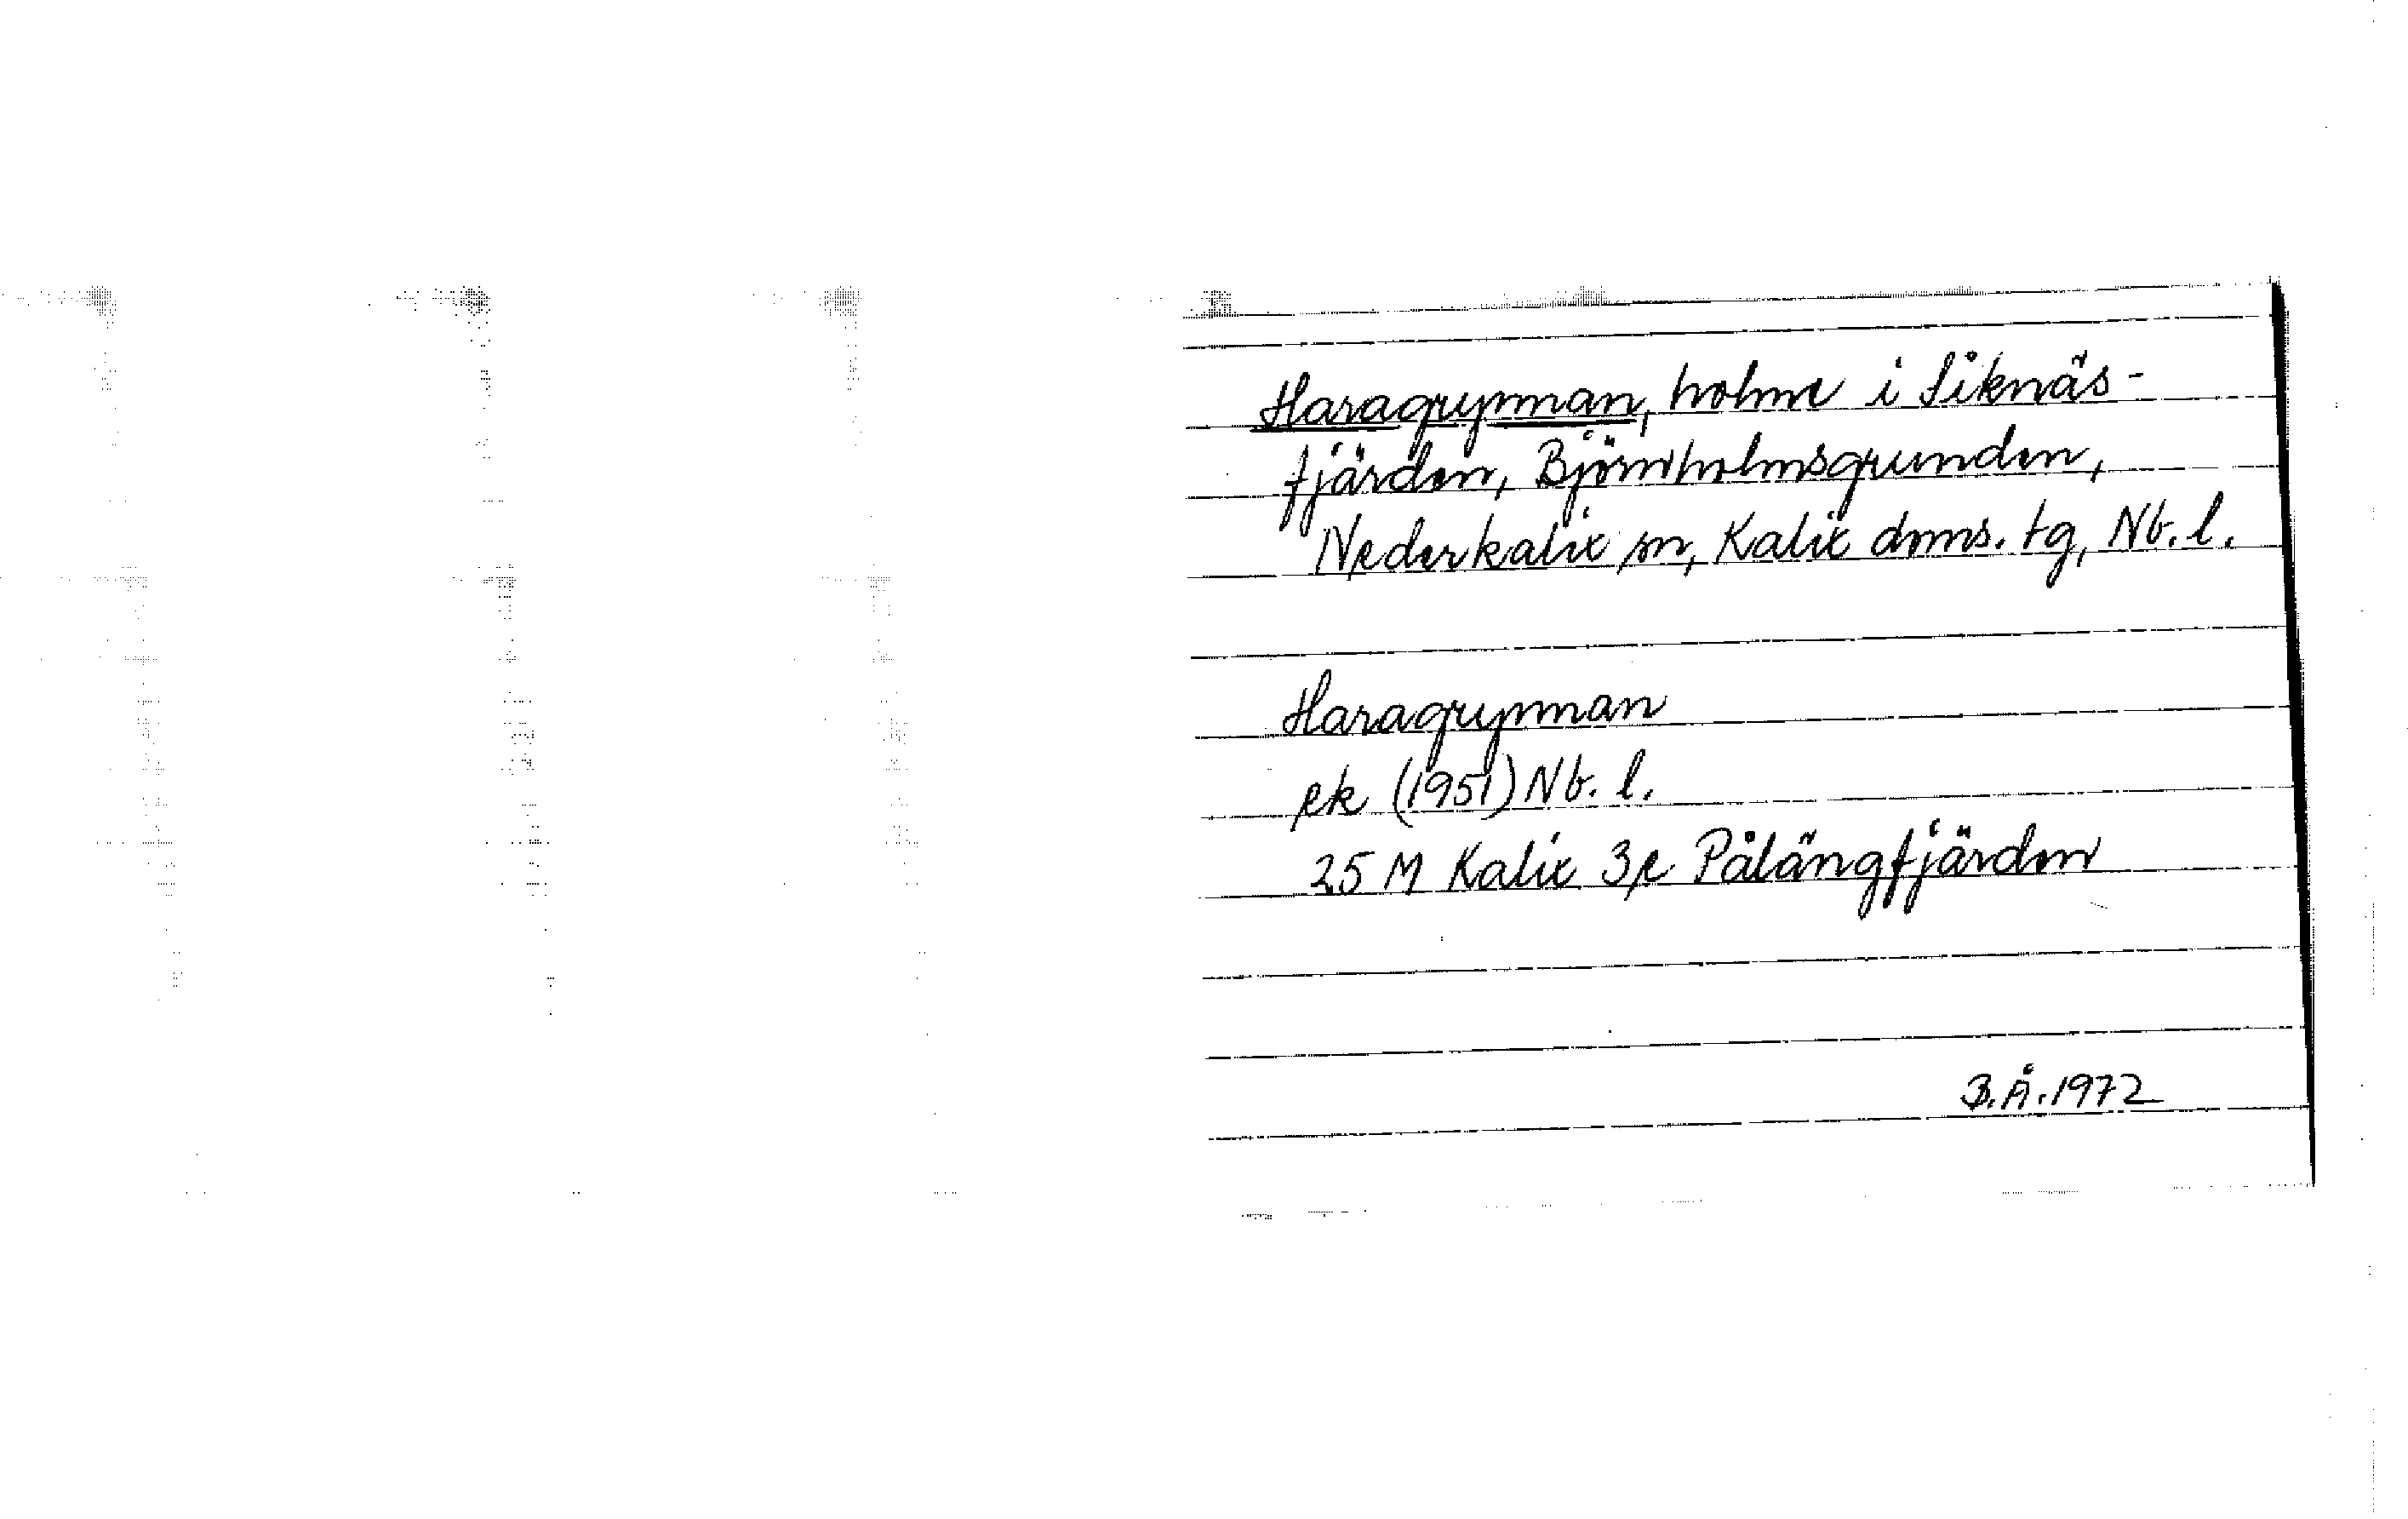 Haragrynnan, holme i Siknäs-
fjärden, Björnholmsgrunden,
Nederkalix sn, Kalix doms. tg, Nb. l.
Haragrynnan
ek (1951) Nb. l.
25 M Kalix 3e Pålängfjärden
B.Å. 1972